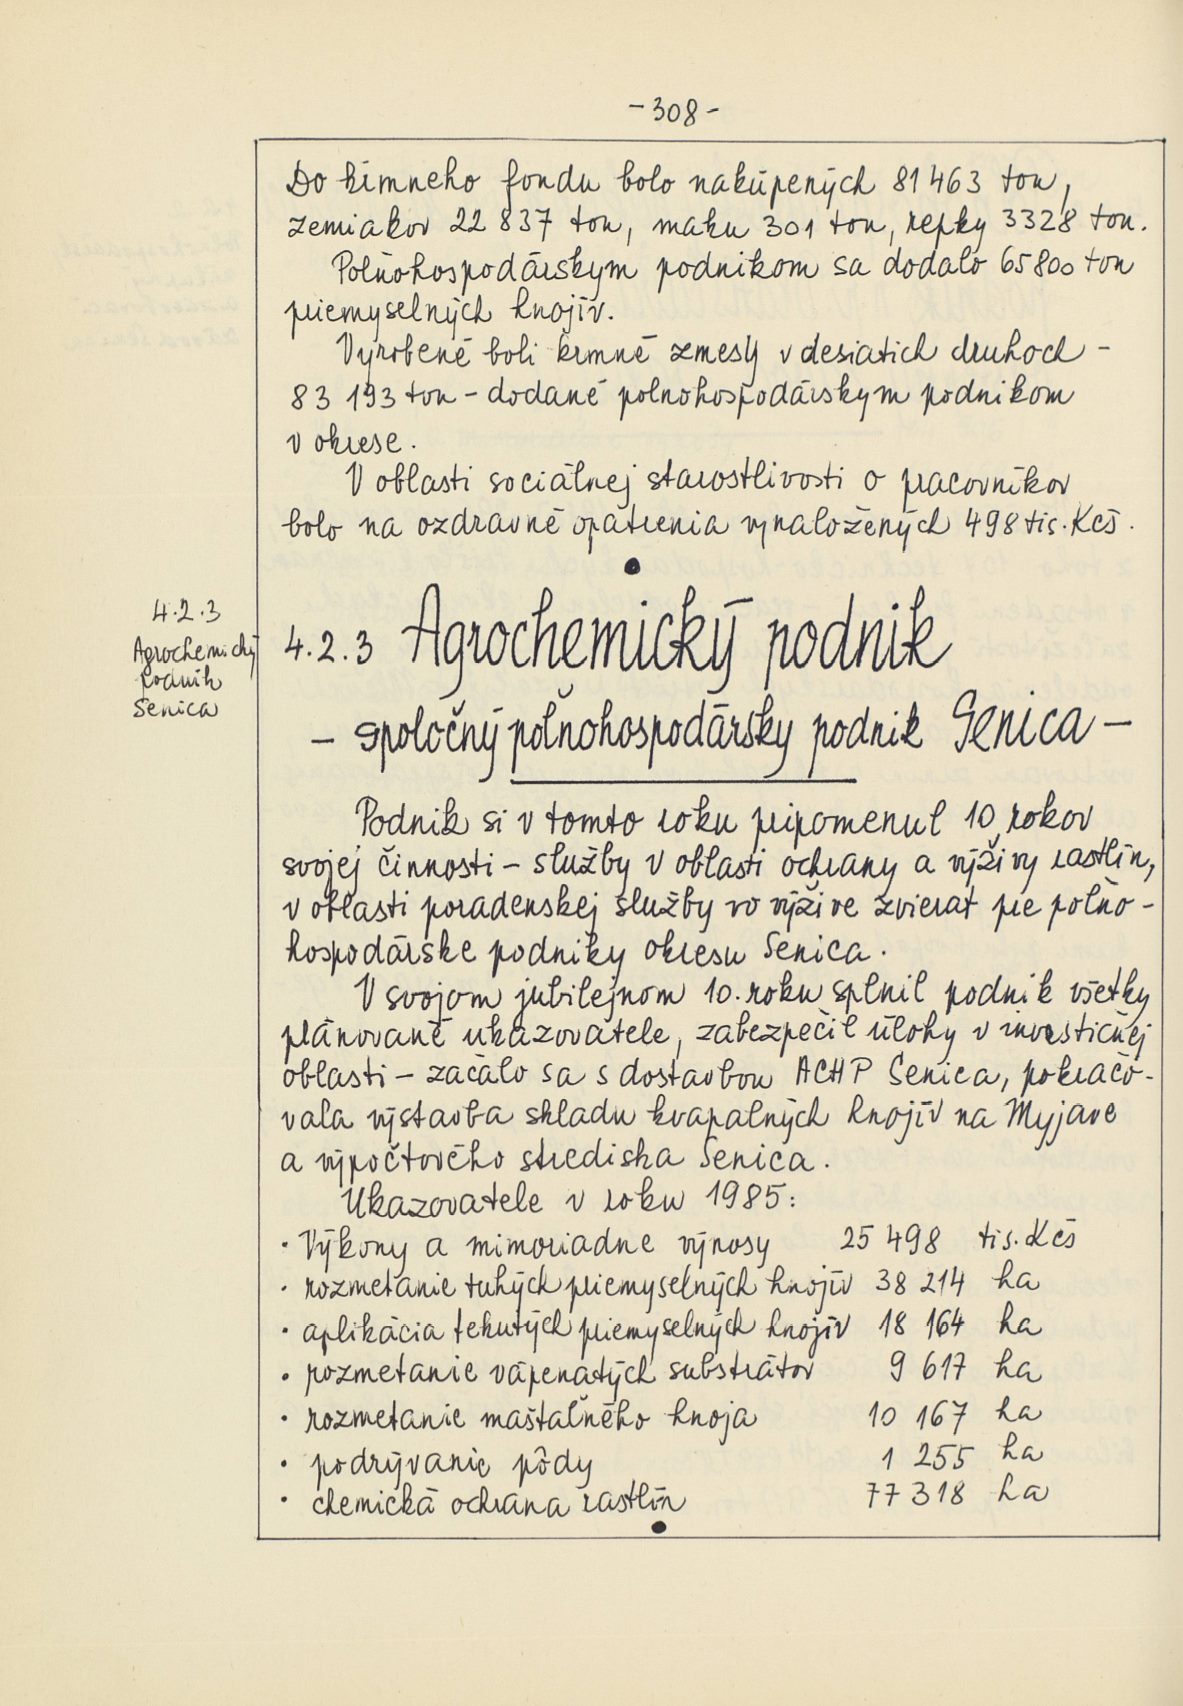 -308-
Do kŕmneho fondu bolo nakúpených 81 463 ton,
zemiakov 22 837 ton, maku 301 ton, repky 3328 ton.
Poľnohospodárskym podnikom sa dodalo 65800 ton
priemyselných hnojív.
Vyrobené boli kŕmné zmesy v desiatich druhoch -
83 193 ton - dodané polnohospodárskym podnikom
v okrese.
V oblasti sociálnej starostlivosti o pracovníkov
bolo na ozdravné opatrenia vynaložených 498 tis. Kčs.
4.2.3
Agrochemický
podnik
Senica
4.2.3 Agrochemický podnik
- spoločný poľnohospodársky podnik Senica -
Podnik si v tomto roku pripomenul 10 rokov
svojej činnosti - služby v oblasti ochrany a výživy rastlín,
v oblasti poradenskej služby vo výžive zvierat pre poľno-
hospodárske podniky okresu Senica.
V svojom jubilejnom 10. roku splnil podnik všetky
plánované ukazovatele, zabezpečil úlohy v investičnej
oblasti - začalo sa s dostavbou ACHP Senica, pokračo-
vala výstavba skladu kvapalných hnojív na Myjave
a výpočtového strediska Senica.
Ukazovatele v roku 1985:
· Výkony a mimoriadne výnosy 25 498 tis. Kčs
· rozmetanie tuhých priemyselných hnojív 38 214 ha
· aplikácia tekutých priemyselných hnojív 18 164 ha
· rozmetanie vápenatých substrátov 9 617 ha
· rozmetanie maštaľného hnoja 10 167 ha
· podrývanie pôdy 1 255 ha
· chemická ochrana rastlín 77 318 ha